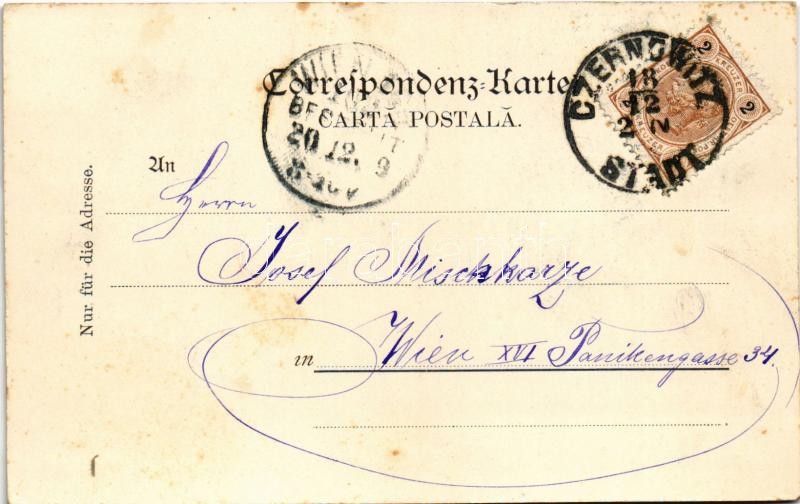 Correspondenz-Karte
CARTĂ POSTALĂ.
CZERNOWITZ
18
12
STADT
2 KREUZER 2
BESTELLT
20 12. 9
Nur für die Adresse.
An
Herrn
Josef Mischkarze
in Wien XVI Panikengasse 34.